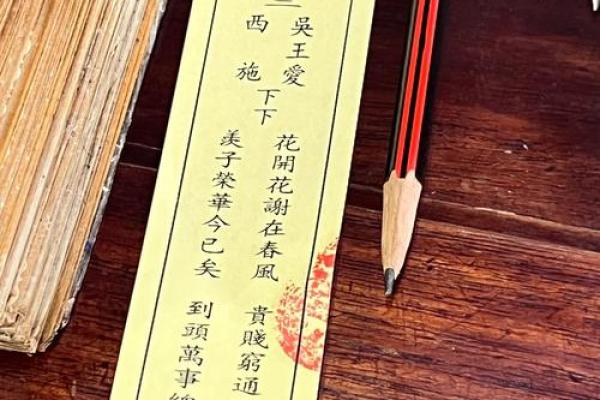 吳王愛
西施
下下
花開花謝在春風 貴賤窮通
羨子榮華今已矣 到頭萬事